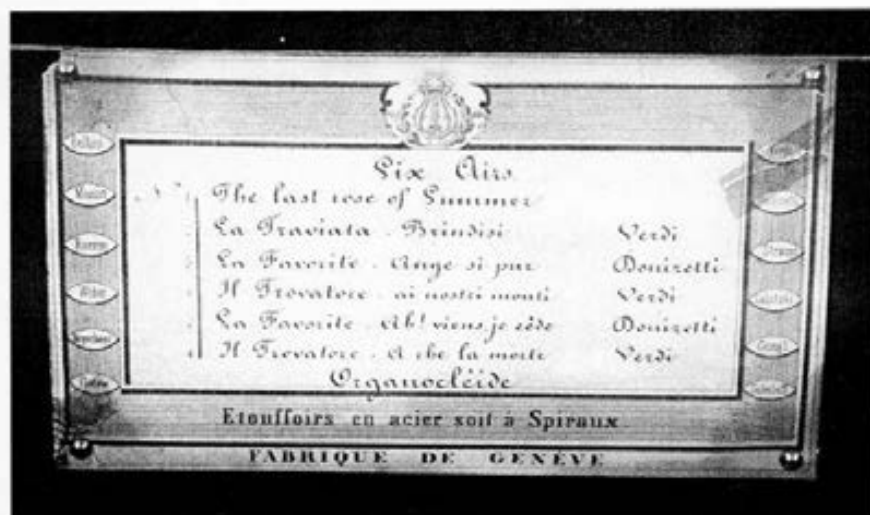 Six Airs
Nº 1 The last rose of Summer
La Traviata . Brindisi Verdi
La Favorite . Ange si pur Donizetti
Il Trovatore . ai nostri monti Verdi
La Favorite . Ah! viens, je cède Donizetti
Il Trovatore . A che la morte Verdi
Organocléide
Etouffoirs en acier soit à Spiraux
FABRIQUE DE GENÈVE
Mozart